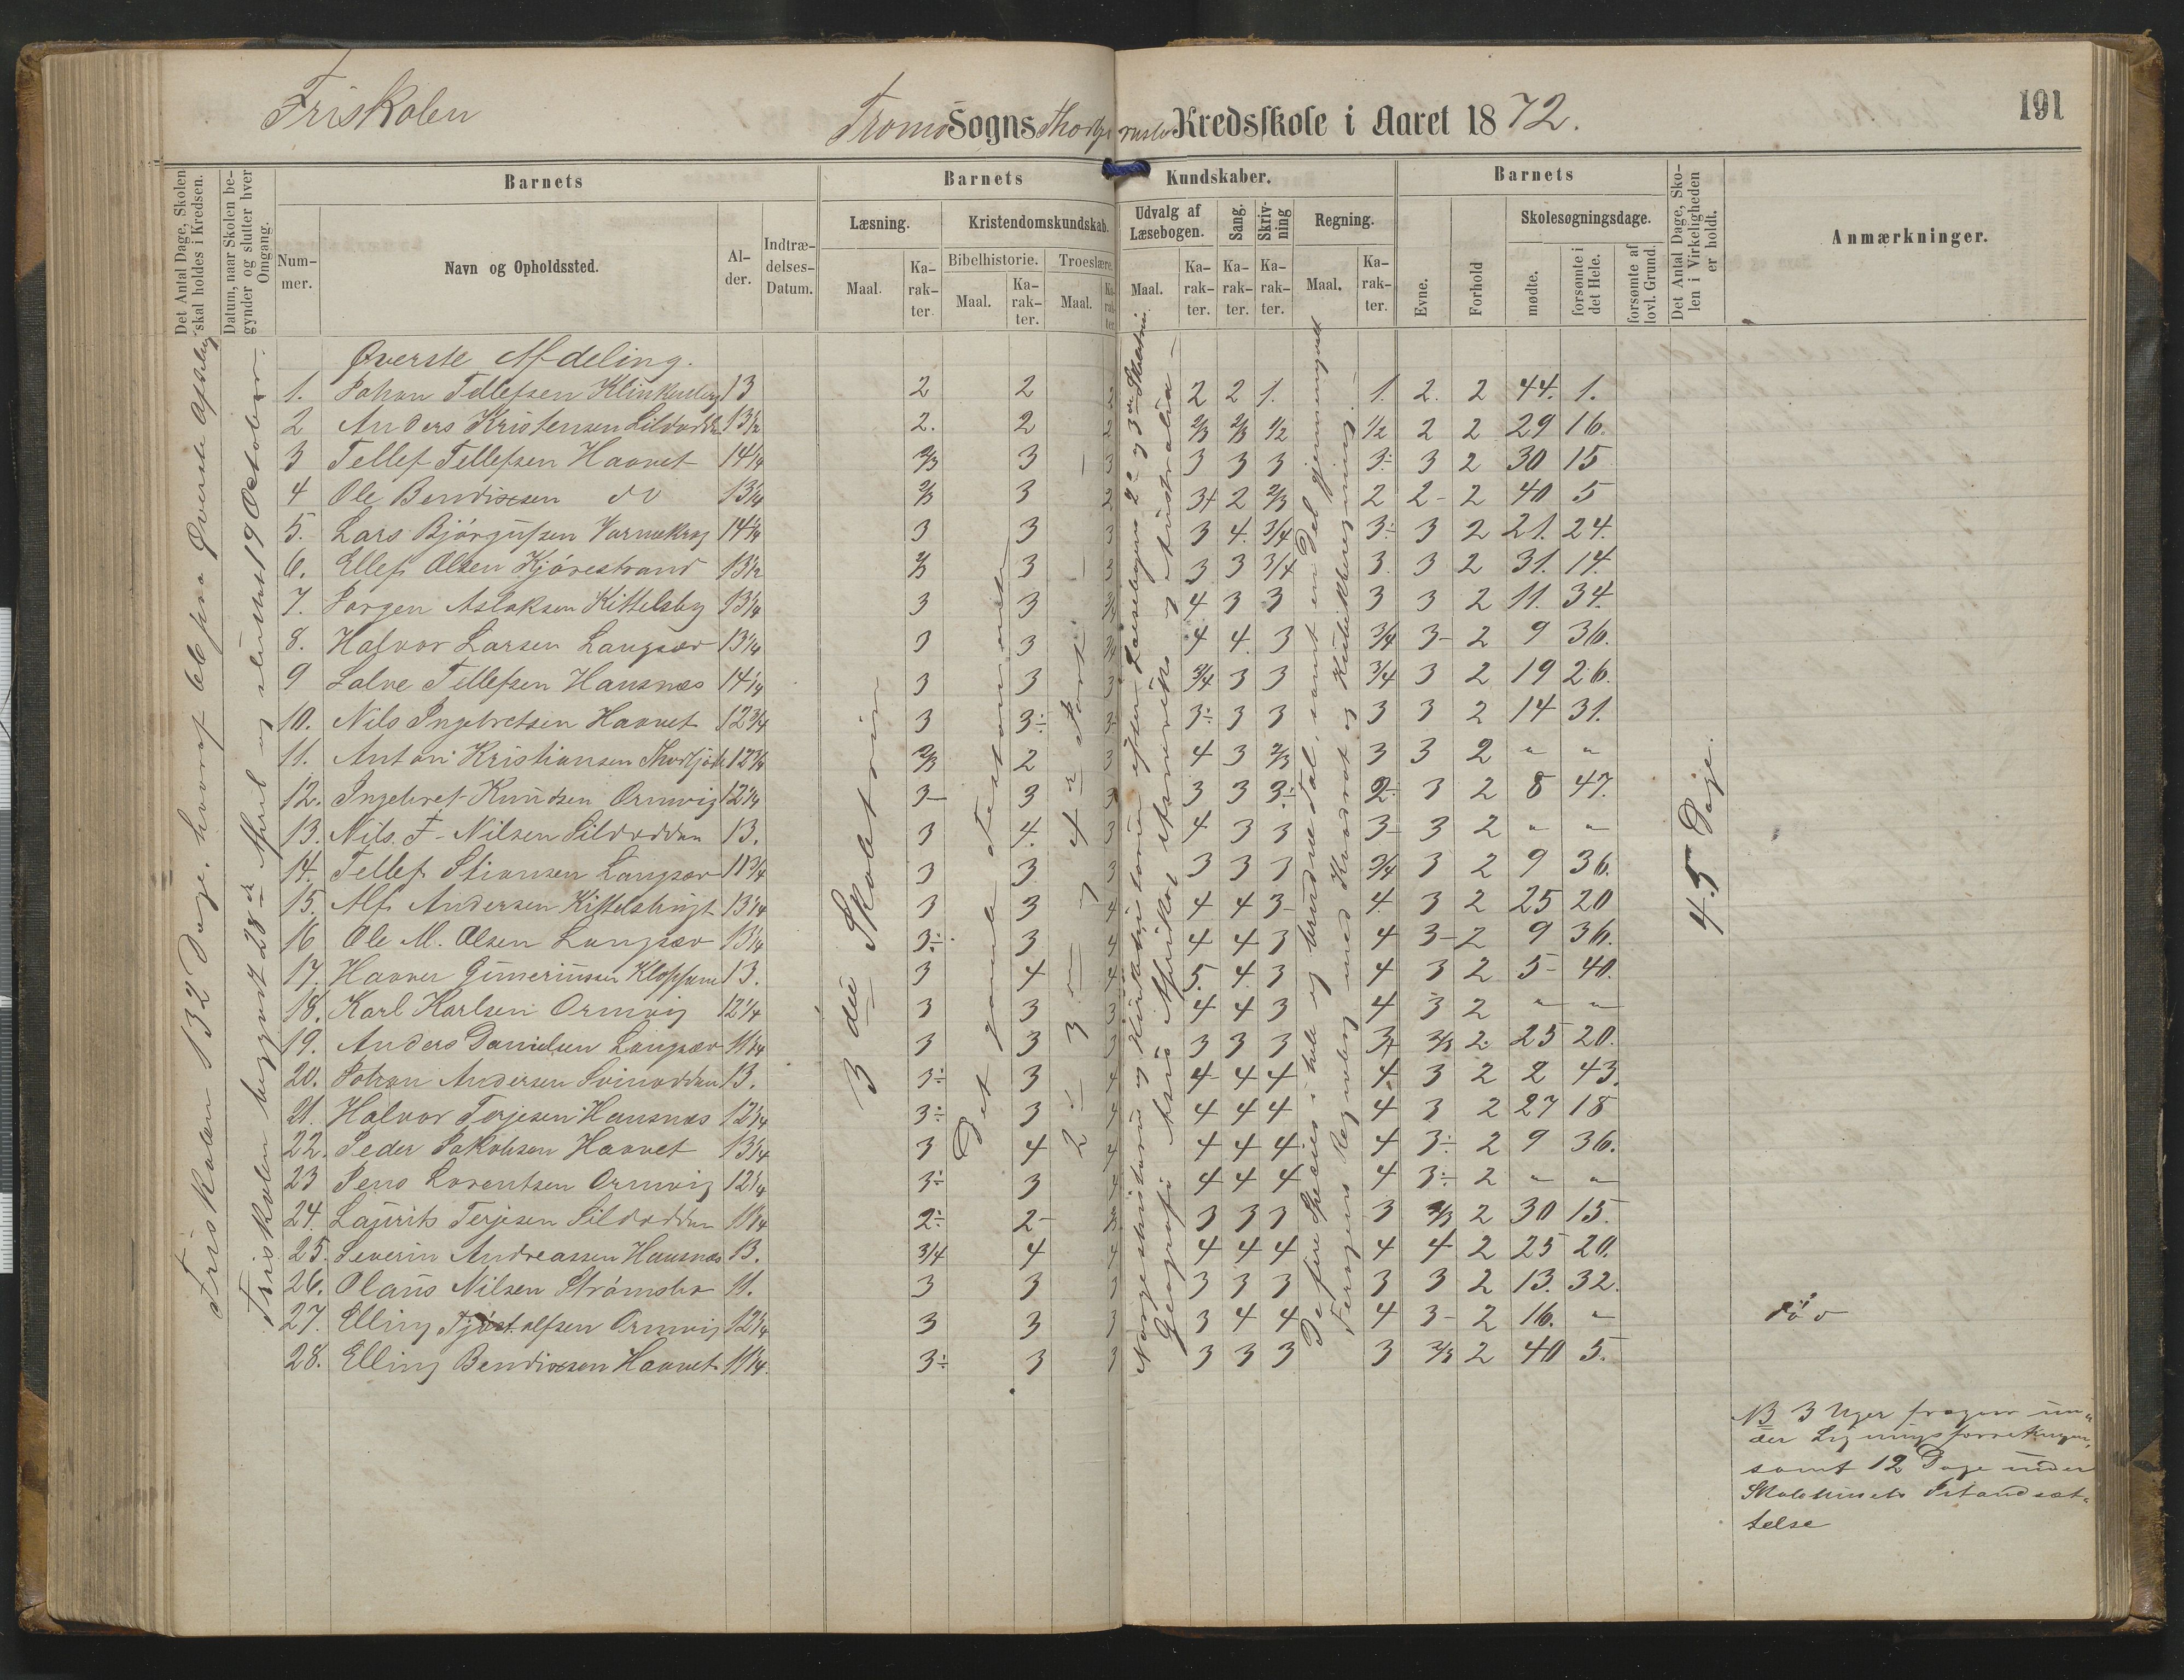 Friskolen
Tromø Sogns Kredsskole i Aaret 1872.
191
Det Antal Dage, Skolen skal holdes i Kredsen.
Datum, naar Skolen begynder og slutter hver Omgang.
Barnets
Barnets
Kundskaber.
Barnets
Det Antal Dage, Skolen i Virkeligheden er holdt.
Anmærkninger.
Nummer.
Navn og Opholdssted.
Alder.
Indtrædelses-Datum.
Læsning.
Kristendomskundskab.
Udvalg af Læsebogen.
Sang.
Skrivning
Regning.
Evne.
Forhold
Skolesøgningsdage.
Bibelhistorie.
Troeslære.
Maal.
Karakter.
Maal.
Karakter.
Maal.
Karakter
Maal.
Karakter.
Karakter.
Karakter.
Maal.
Karakter.
mødte.
forsømte i det Hele.
forsømte af lovl. Grund.
Øverste Afdeling.
1. Johan Tellefsen 13 2 2 2 2 2 1. 1. 2. 2 44. 1.
2 Anders Kristensen Sildodden 13 1/2 2. 2 2 2/3 2/3 1/2 1/2 2 2 29 16.
3 Tellef Tellefsen Haavet 14 1/4 2/3 3 3 3 3 3 3÷ 3 2 30 15
4 Ole Bendixsen do 13 1/4 2/3 3 2 3+ 2 2/3 2 2- 2 40 5
5. Lars Bjørgufsen 14 1/4 3 3 3 3 4. 3/4 3÷ 3 2 21. 24.
6. Ellef Olsen Kjørestrand 13 1/2 2/3 3 3 3 3 3/4 3. 3 2 31. 14.
7. Jørgen Aslaksen Kittelsby 13 1/4 3 3 3/4 4 3 3 3 3 2 11. 34.
8. Halvor Larsen Langsæv 13 1/4 3 3 3/4 4 4. 3 3/4 3- 2 9 36.
9 Salve Tellefsen Hausnæs 14 1/4 3 3 3 3/4 3 3 3/4 3 2 19 26.
10. Nils Ingebretsen Haavet 12 3/4 3 3÷ 3 3÷ 3 3 3 3 2 14 31.
11. Anton Kristiansen 12 3/4 2/3 2 3 4 3 2/3 3 3 2 " "
12. Ingebret Knudsen Ormvig 12 1/4 3- 3 3 3 3 3÷ 2÷ 3 2 8 47.
13. Nils. F. Nilsen Sildodden 13. 3 4. 3 4 3 3 3- 3 2 " "
14. Tellef Stiansen Langsæv 11 3/4 3 3 3 3 3 3 3/4 3 2 9 36.
15. Alf Andersen 13 1/4 3 3 4 4 4 3- 4. 3 2 25 20
16 Ole M. Olsen Langsæv 13 1/4 3÷ 3 4 4 4 3 4 3- 2 9 36.
17. Haaver 13. 3 4 4 5. 4 3 4 3 2 5- 40.
18. Karl Karlsen Ormvig 12 1/4 3 3 3 4 4 3 4 3 2 " "
19. Anders Danielsen Langsæv 11 1/4 3 3 3 3 3 3 3/4 2/3 2. 25 20.
20. Johan Andersen Svinodden 13. 3÷ 3 4 4 4 4 4 3 2 2 43.
21. Halvor Terjesen Hausnæs 12 3/4 3÷ 3 4 4 4 4 4 3 2 27 18
22. Peder Jakobsen Haavet 13 1/4 3 4 4 4 4 4 4 3÷ 2 9 36.
23 Jens Lorentsen Ormvig 12 1/4 3÷ 3 4 4 4 4 4 3÷ 2 " "
24. Laurits Terjesen Sildodden 11 1/4 2÷ 2- 3 3 3 3 2/3 2 30 15.
25. Severin Andreassen Hausnæs 13. 3/4 4 4 4 4 4 4 4 2 25 20.
26. Olaus Nilsen Strømsbo 11. 3 3 3 3 3 3 3 3 2 13. 32.
27. Elling Ormvig 12 3/4 3 3 3 3 4 4 4 3- 2 16. "
28. Elling Bendixsen Haavet 11 1/4 3÷ 3 3 3 3 3 3 2/3 2 40 5.
Friskolen 132 Dage, hvoraf 66 paa Øverste Afdeling
Friskolen begyndt 28de April og sluttet 19 October.
3die Skoletrin
Det gamle Testamente
2, 3 og 4de Part.
Norgeshistorie og Kirkehistorie efter Læsebogens 2det og 3die
Geografi: Asia Afrika, Amerika og Australia
De fire i hele og brudne Tal, samt en Del gjennemgaaet
Regnebog med Kvadrat og Kubikberegning
45 Dage.
død
NB 3 Uger fragaar un-
der
samt 12 Dage under
Skolehusets Istandsæt-
telse